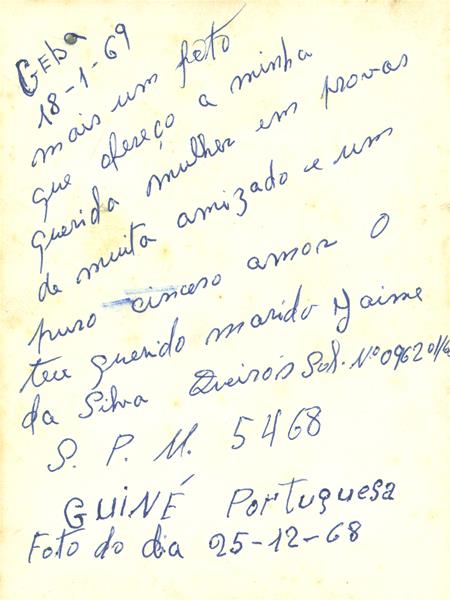 Geba
18-1-69
mais um foto
que ofereço a minha
querida mulher em provas
de muita amizade e um
puro cincero amor O
teu querido marido Jaime
da Silva Queirós Sol. Nº 0962
S. P. M. 5468
GUINÉ Portuguesa
Foto do dia 25-12-68